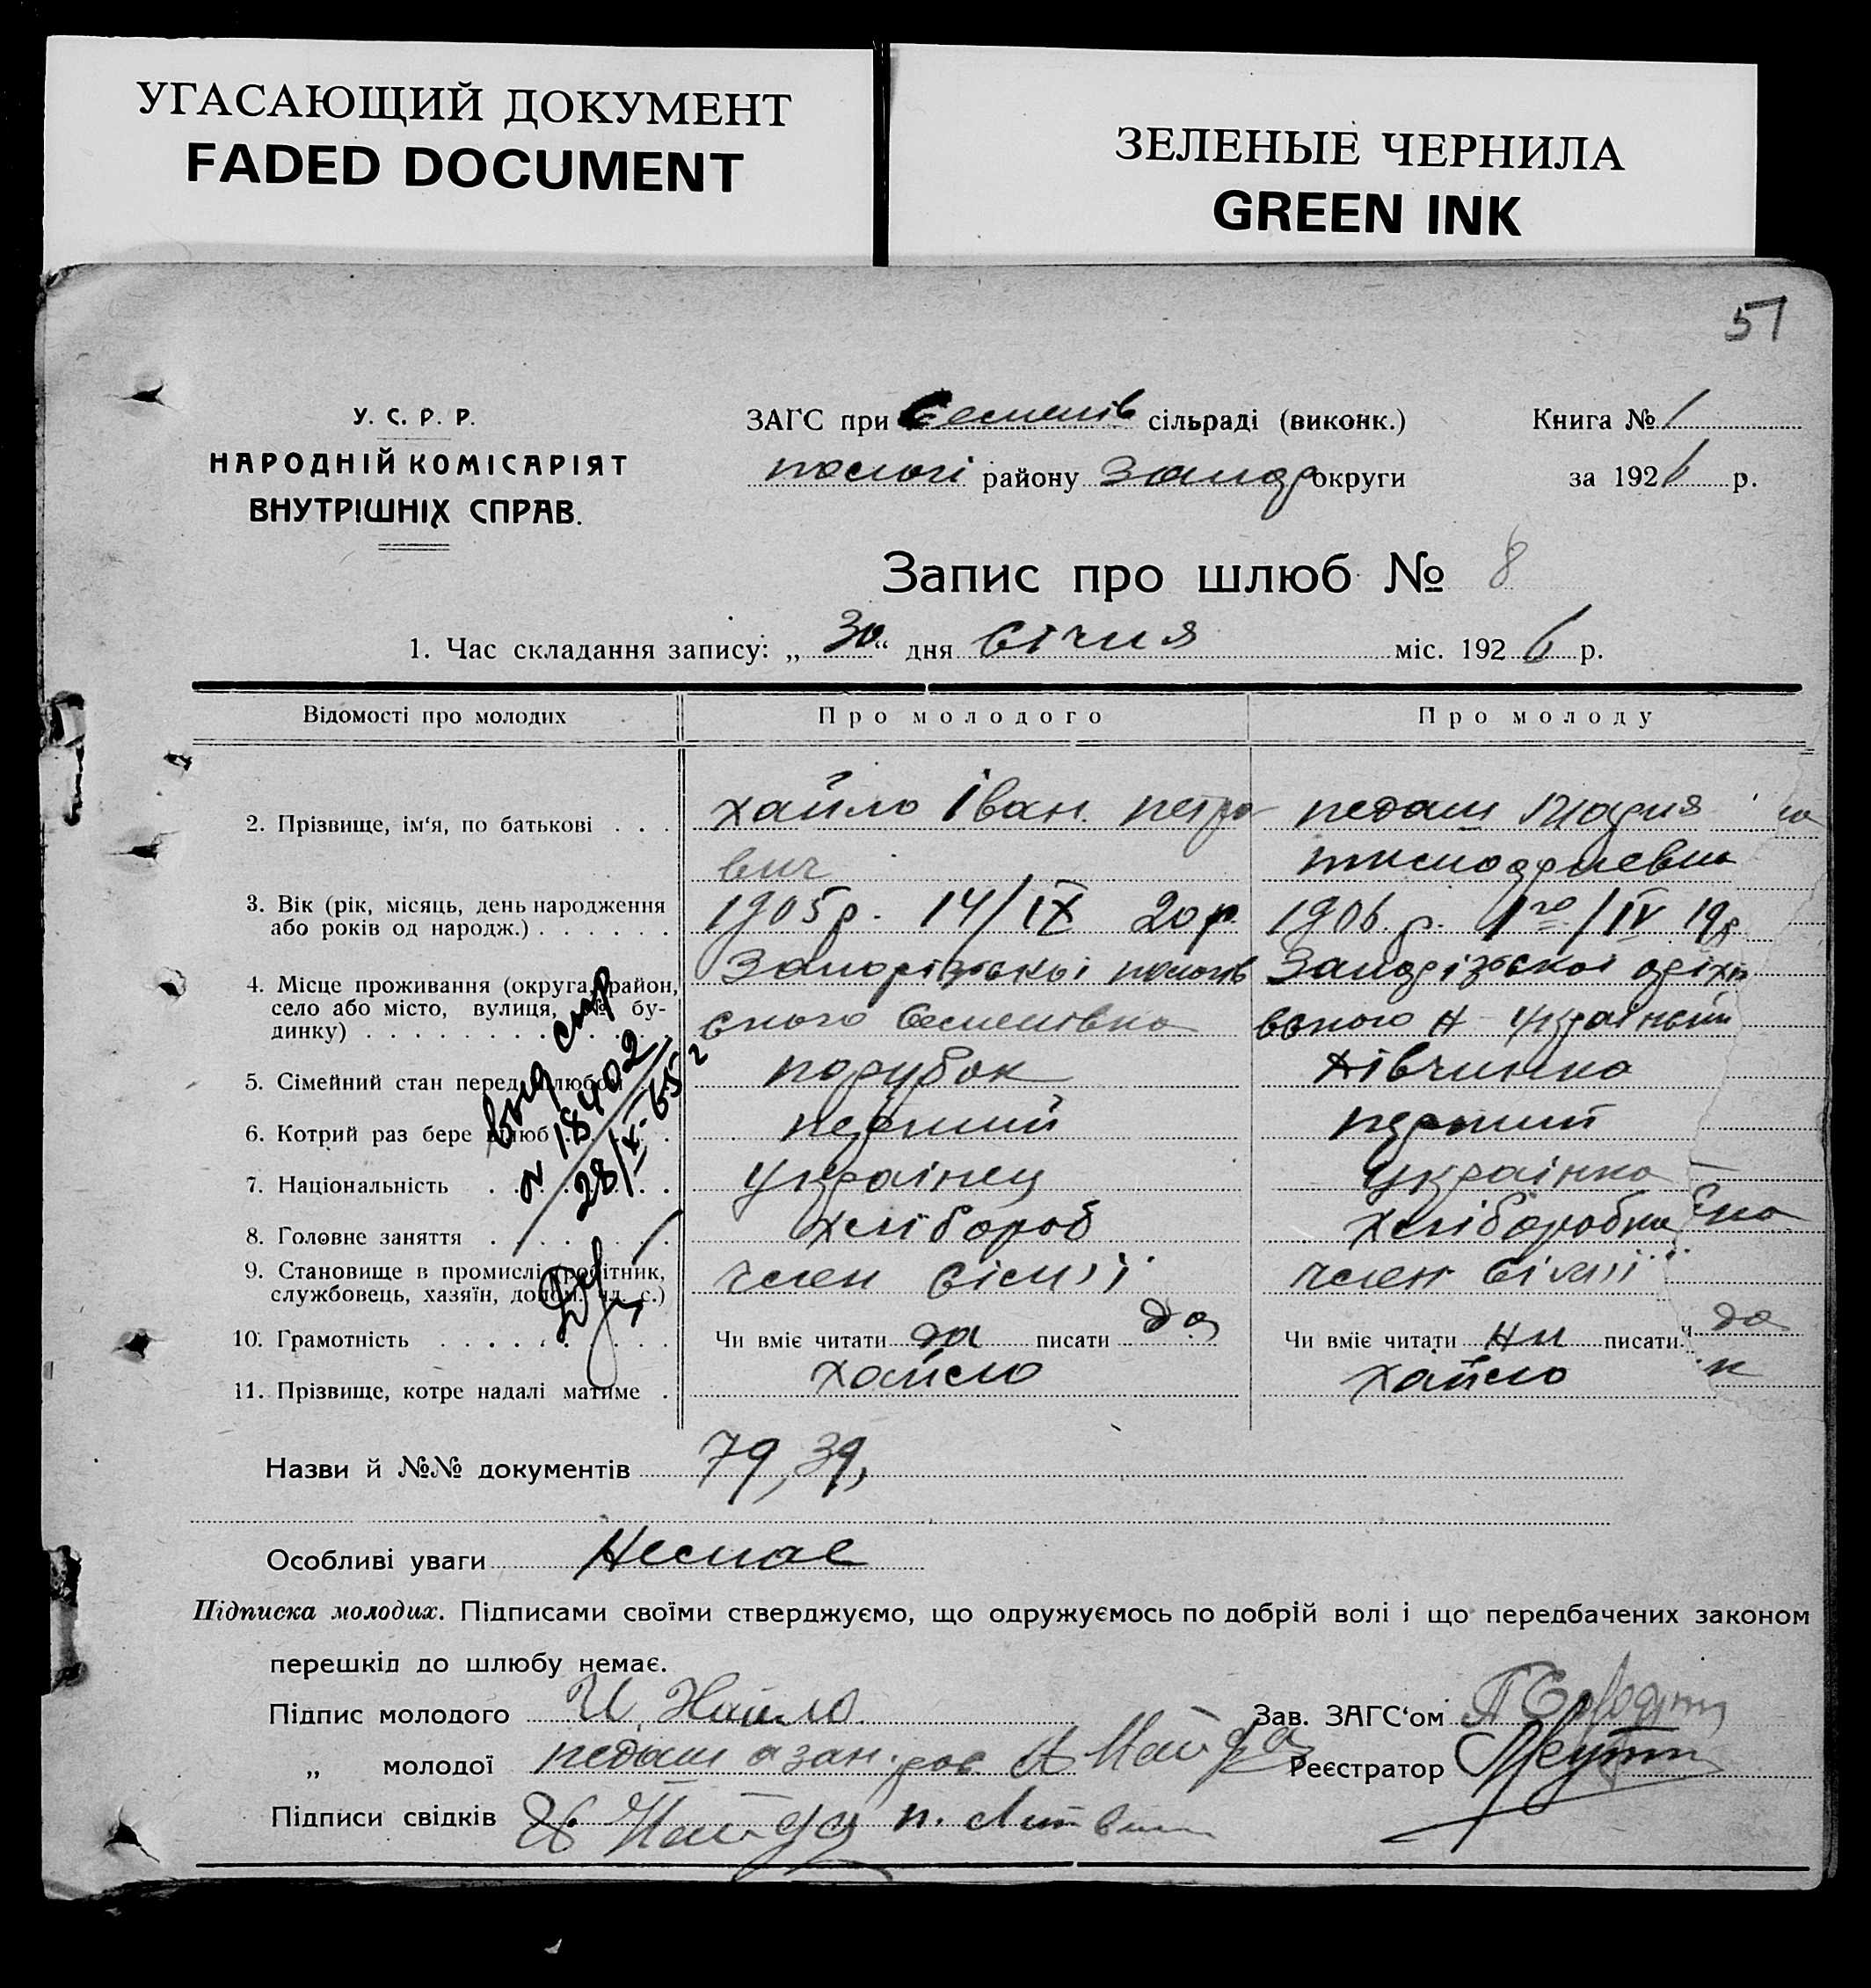 УГАСАЮЩИЙ ДОКУМЕНТ
FADED DOCUMENT
ЗЕЛЕНЫЕ ЧЕРНИЛА
GREEN INK
51
У. С. Р. Р.
НАРОДНІЙ КОМІСАРІЯТ
ВНУТРІШНІХ СПРАВ.
ЗАГС при Семенів сільраді (виконк.)
пологі району Запор округи
Книга № 1
за 1926 р.
Запис про шлюб № 8
1. Час складання запису: „30" дня Січня міс. 1926 р.
Відомості про молодих Про молодого Про молоду
2. Прізвище, ім'я, по батькові . . . хайло Іван петро педаш Мария
вич тимофиевна
3. Вік (рік, місяць, день народження
або років од народж.) . . . . . . 1905р. 14/IX 20р. 1906.р. 1го/IV 19р
4. Місце проживання (округа, район, Запорізької пологів Запорізської оріхів
село або місто, вулиця, № бу- ського Семенівка вского Н-український
динку) . . . . . . . . . .
5. Сімейний стан перед шлюбом парубок дівчинка
6. Котрий раз бере шлюб . . . . перший перший
7. Національність . . . . . . . українец українка
8. Головне заняття . . . . . . . хлібороб хліборобка
9. Становище в промислі (робітник, член сімії член сімії
службовець, хазяїн, допом. чл. с.)
10. Грамотність . . . . . . . Чи вміє читати да писати да Чи вміє читати ни писати
11. Прізвище, котре надалі матиме . хайло хайло
вид спр
N 18402
28/IX-65 г
Назви й №№ документів 79, 39,
Особливі уваги Немає
Підписка молодих. Підписами своїми стверджуємо, що одружуємось по добрій волі і що передбачених законом
перешкід до шлюбу немає.
Підпис молодого И. Хайло
Зав. ЗАГС'ом
„ молодої педаш а за н. рос. А Найда
Реєстратор
Підписи свідків Найда п. Литвин